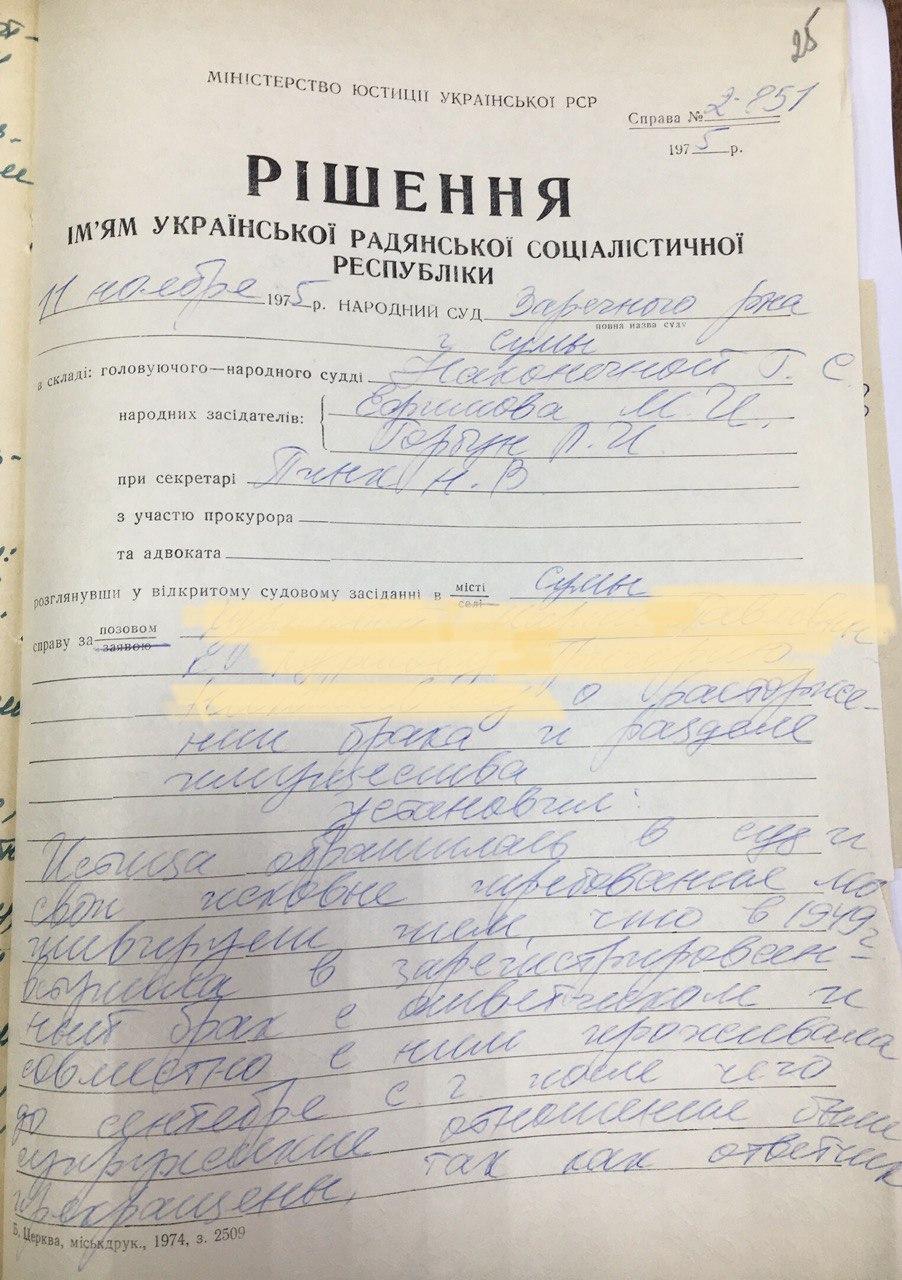 25
МІНІСТЕРСТВО ЮСТИЦІЇ УКРАЇНСЬКОЇ РСР
Справа № 2-851
1975 р.
РІШЕННЯ
ІМ'ЯМ УКРАЇНСЬКОЇ РАДЯНСЬКОЇ СОЦІАЛІСТИЧНОЇ
РЕСПУБЛІКИ
11 ноября 1975 р. НАРОДНИЙ СУД Заречного р-на
повна назва суду
г Сумы
в складі: головуючого—народного судді Наконечной Г. С.
народних засідателів: Ефимова М. И.
Горбун Л. И.
при секретарі Н. В.
з участю прокурора
та адвоката
розглянувши у відкритому судовому засіданні в місті Сумы
селі
справу за позовом
заявою
о расторже-
нии брака и разделе
имущества
установил:
Истица обратилась в суд и
свои исковые требования мо
тивирует тем, что в 1949 г
вступила в зарегистрирован-
ный брак с ответчиком и
совместно с ним проживала
до сентября с г после чего
супружеские отношения были
прекращены, так как ответчик
Б. Церква, міськдрук., 1974, з. 2509